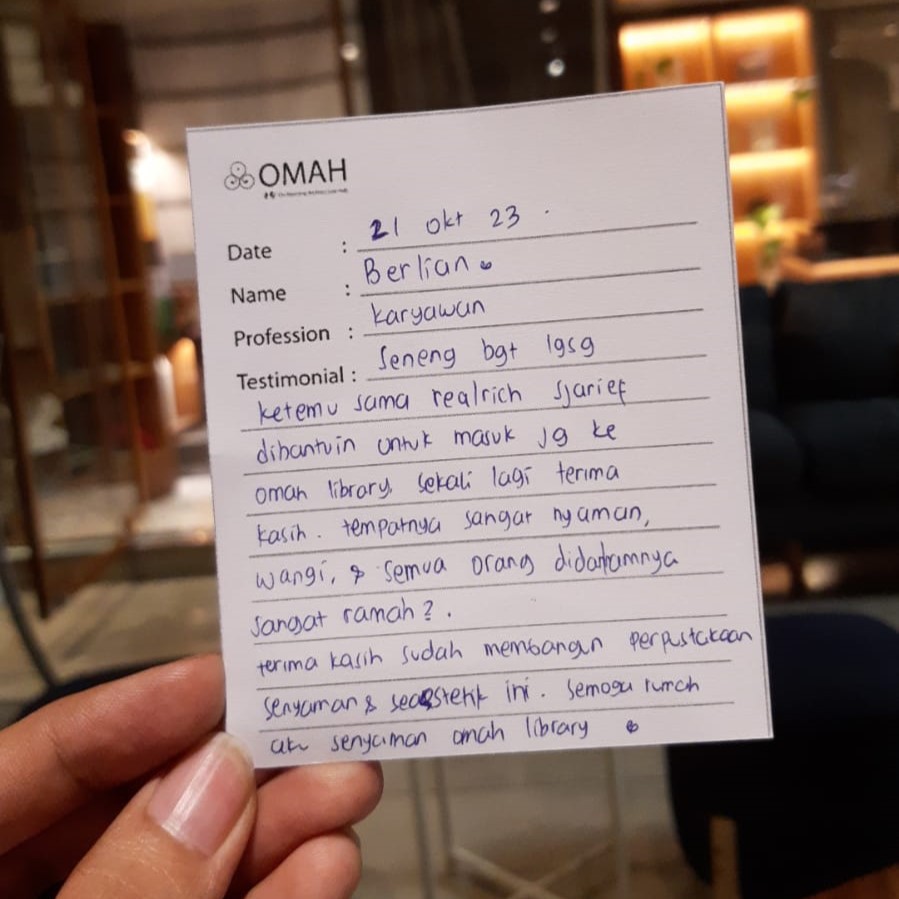 OMAH
Date : 21 okt 23 .
Name : Berlian
Profession : karyawan
Testimonial : Seneng bgt lgsg
ketemu sama realrich sjarief
dibantuin untuk masuk jg ke
omah library, sekali lagi terima
kasih. tempatnya sangat nyaman,
wangi, & semua orang didalamnya
sangat ramah?.
terima kasih sudah membangun perpustakaan
senyaman & seaestetik ini. semoga rumah
ak senyaman omah library